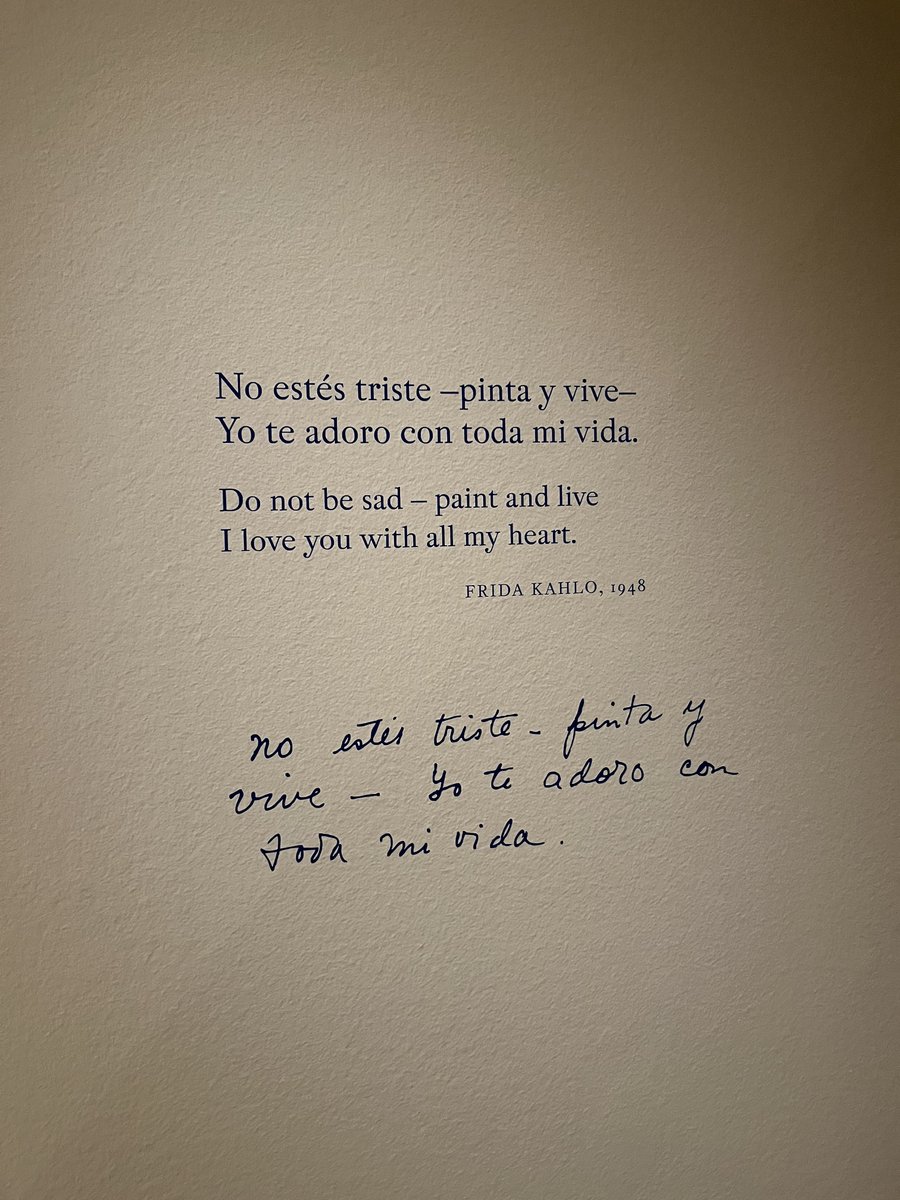 No estés triste –pinta y vive–
Yo te adoro con toda mi vida.
Do not be sad – paint and live
I love you with all my heart.
FRIDA KAHLO, 1948
no estés triste - pinta y
vive — Yo te adoro con
toda mi vida.